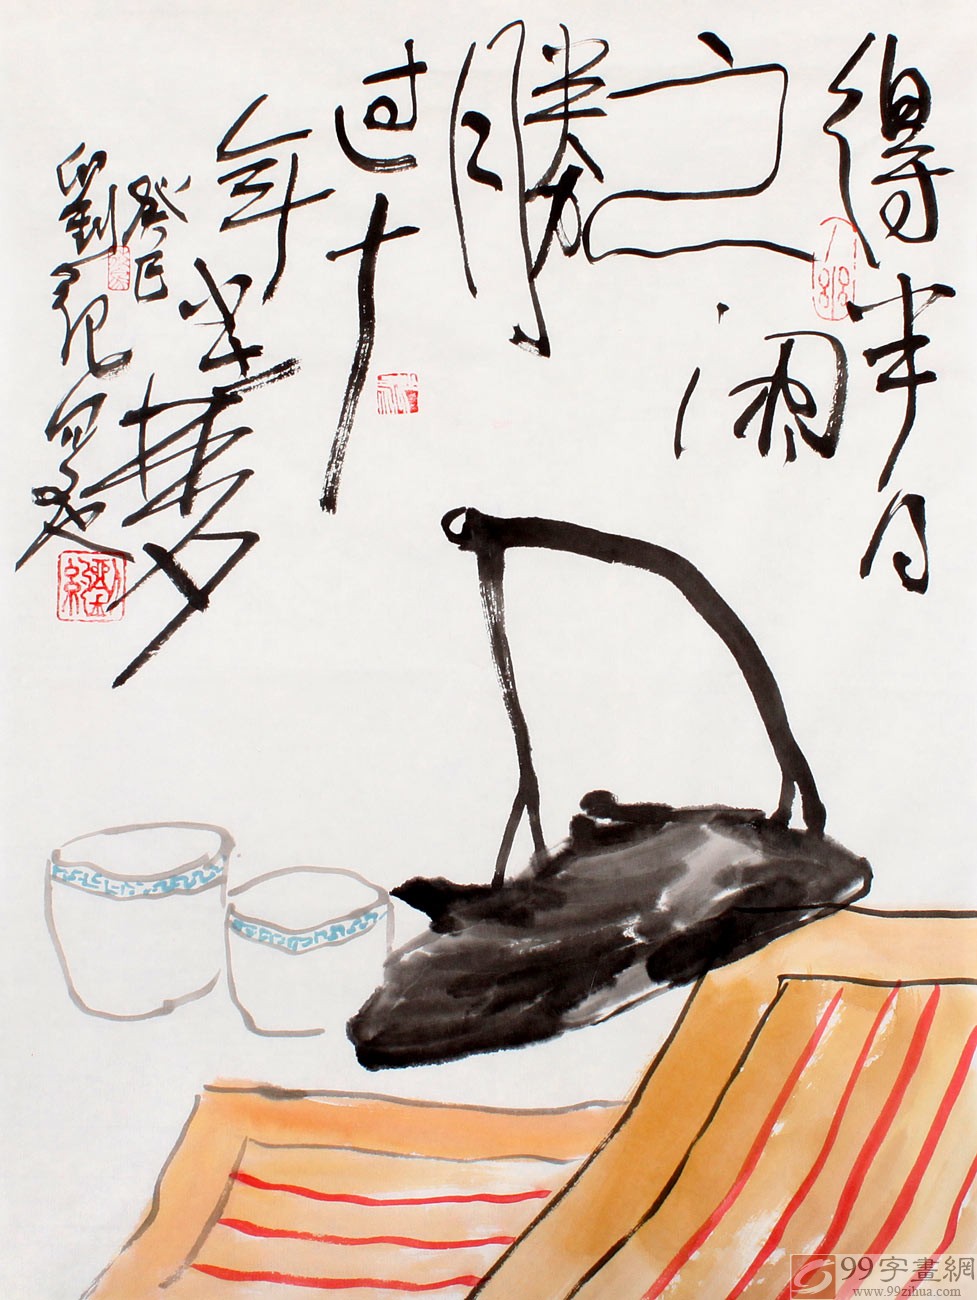 得半日
之闲
勝
过十
年尘梦
癸巳
劉
99字畫網
www.99zihua.com